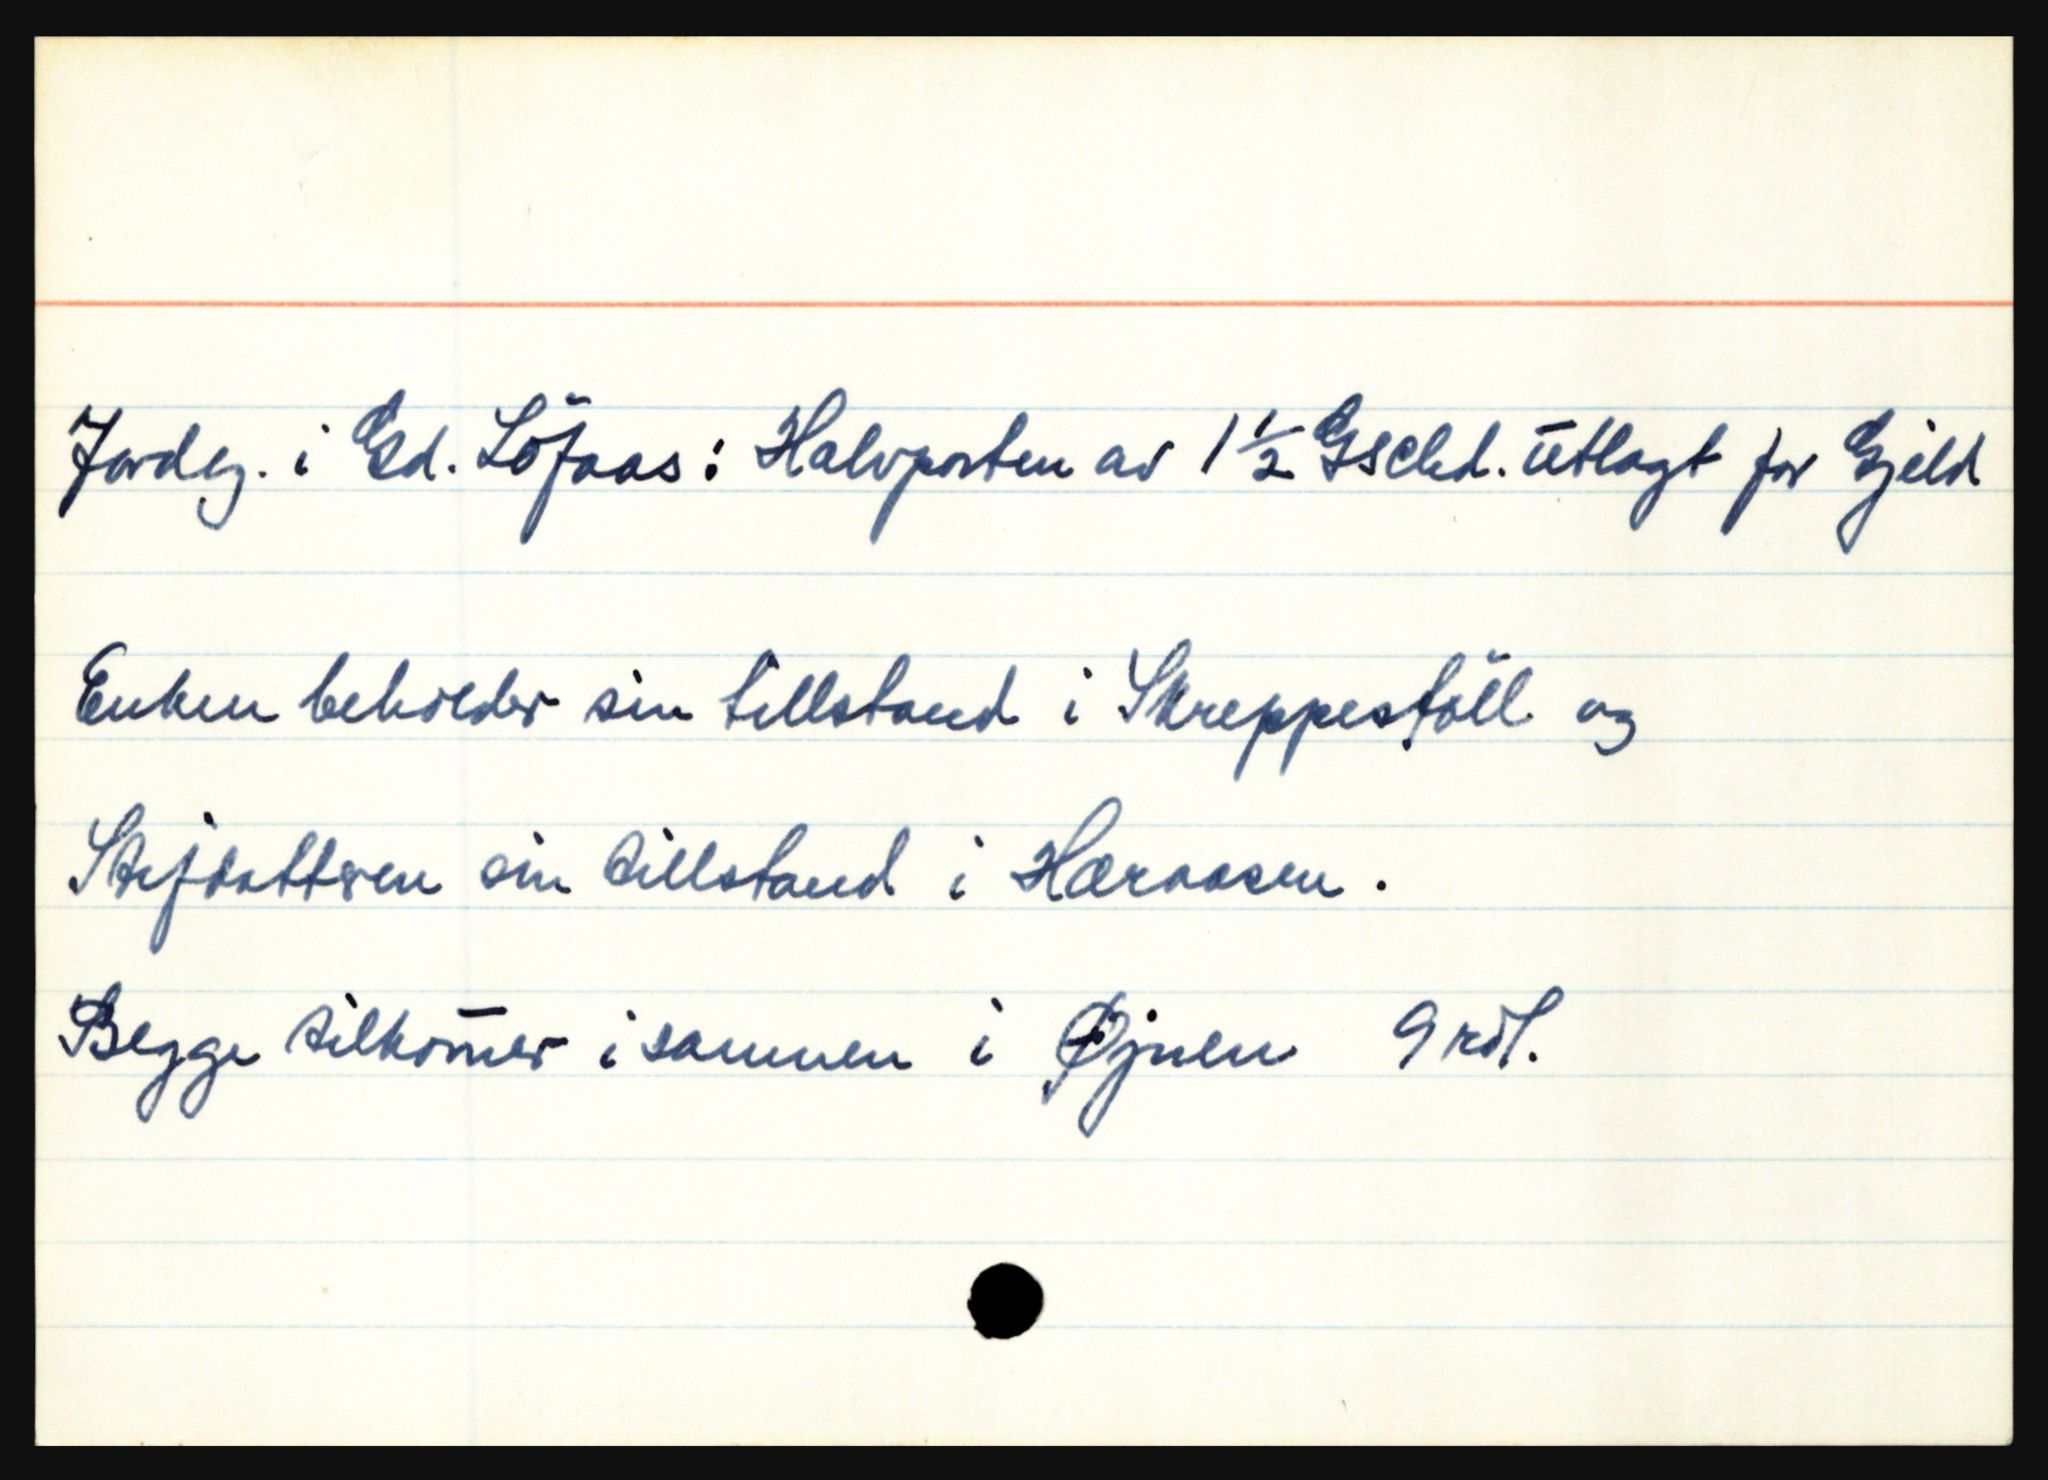 Jordeg. i Gd. Löfaas: Halvparten av 1 1/2 Gschd. ūtlagt for Gjeld
Enken beholder sin tillstand i Skreppestöll og
Stifdatteren sin tillstand i Hæraasen.
Begge tilkom̄er isammen i Øjnen 9 rdl.